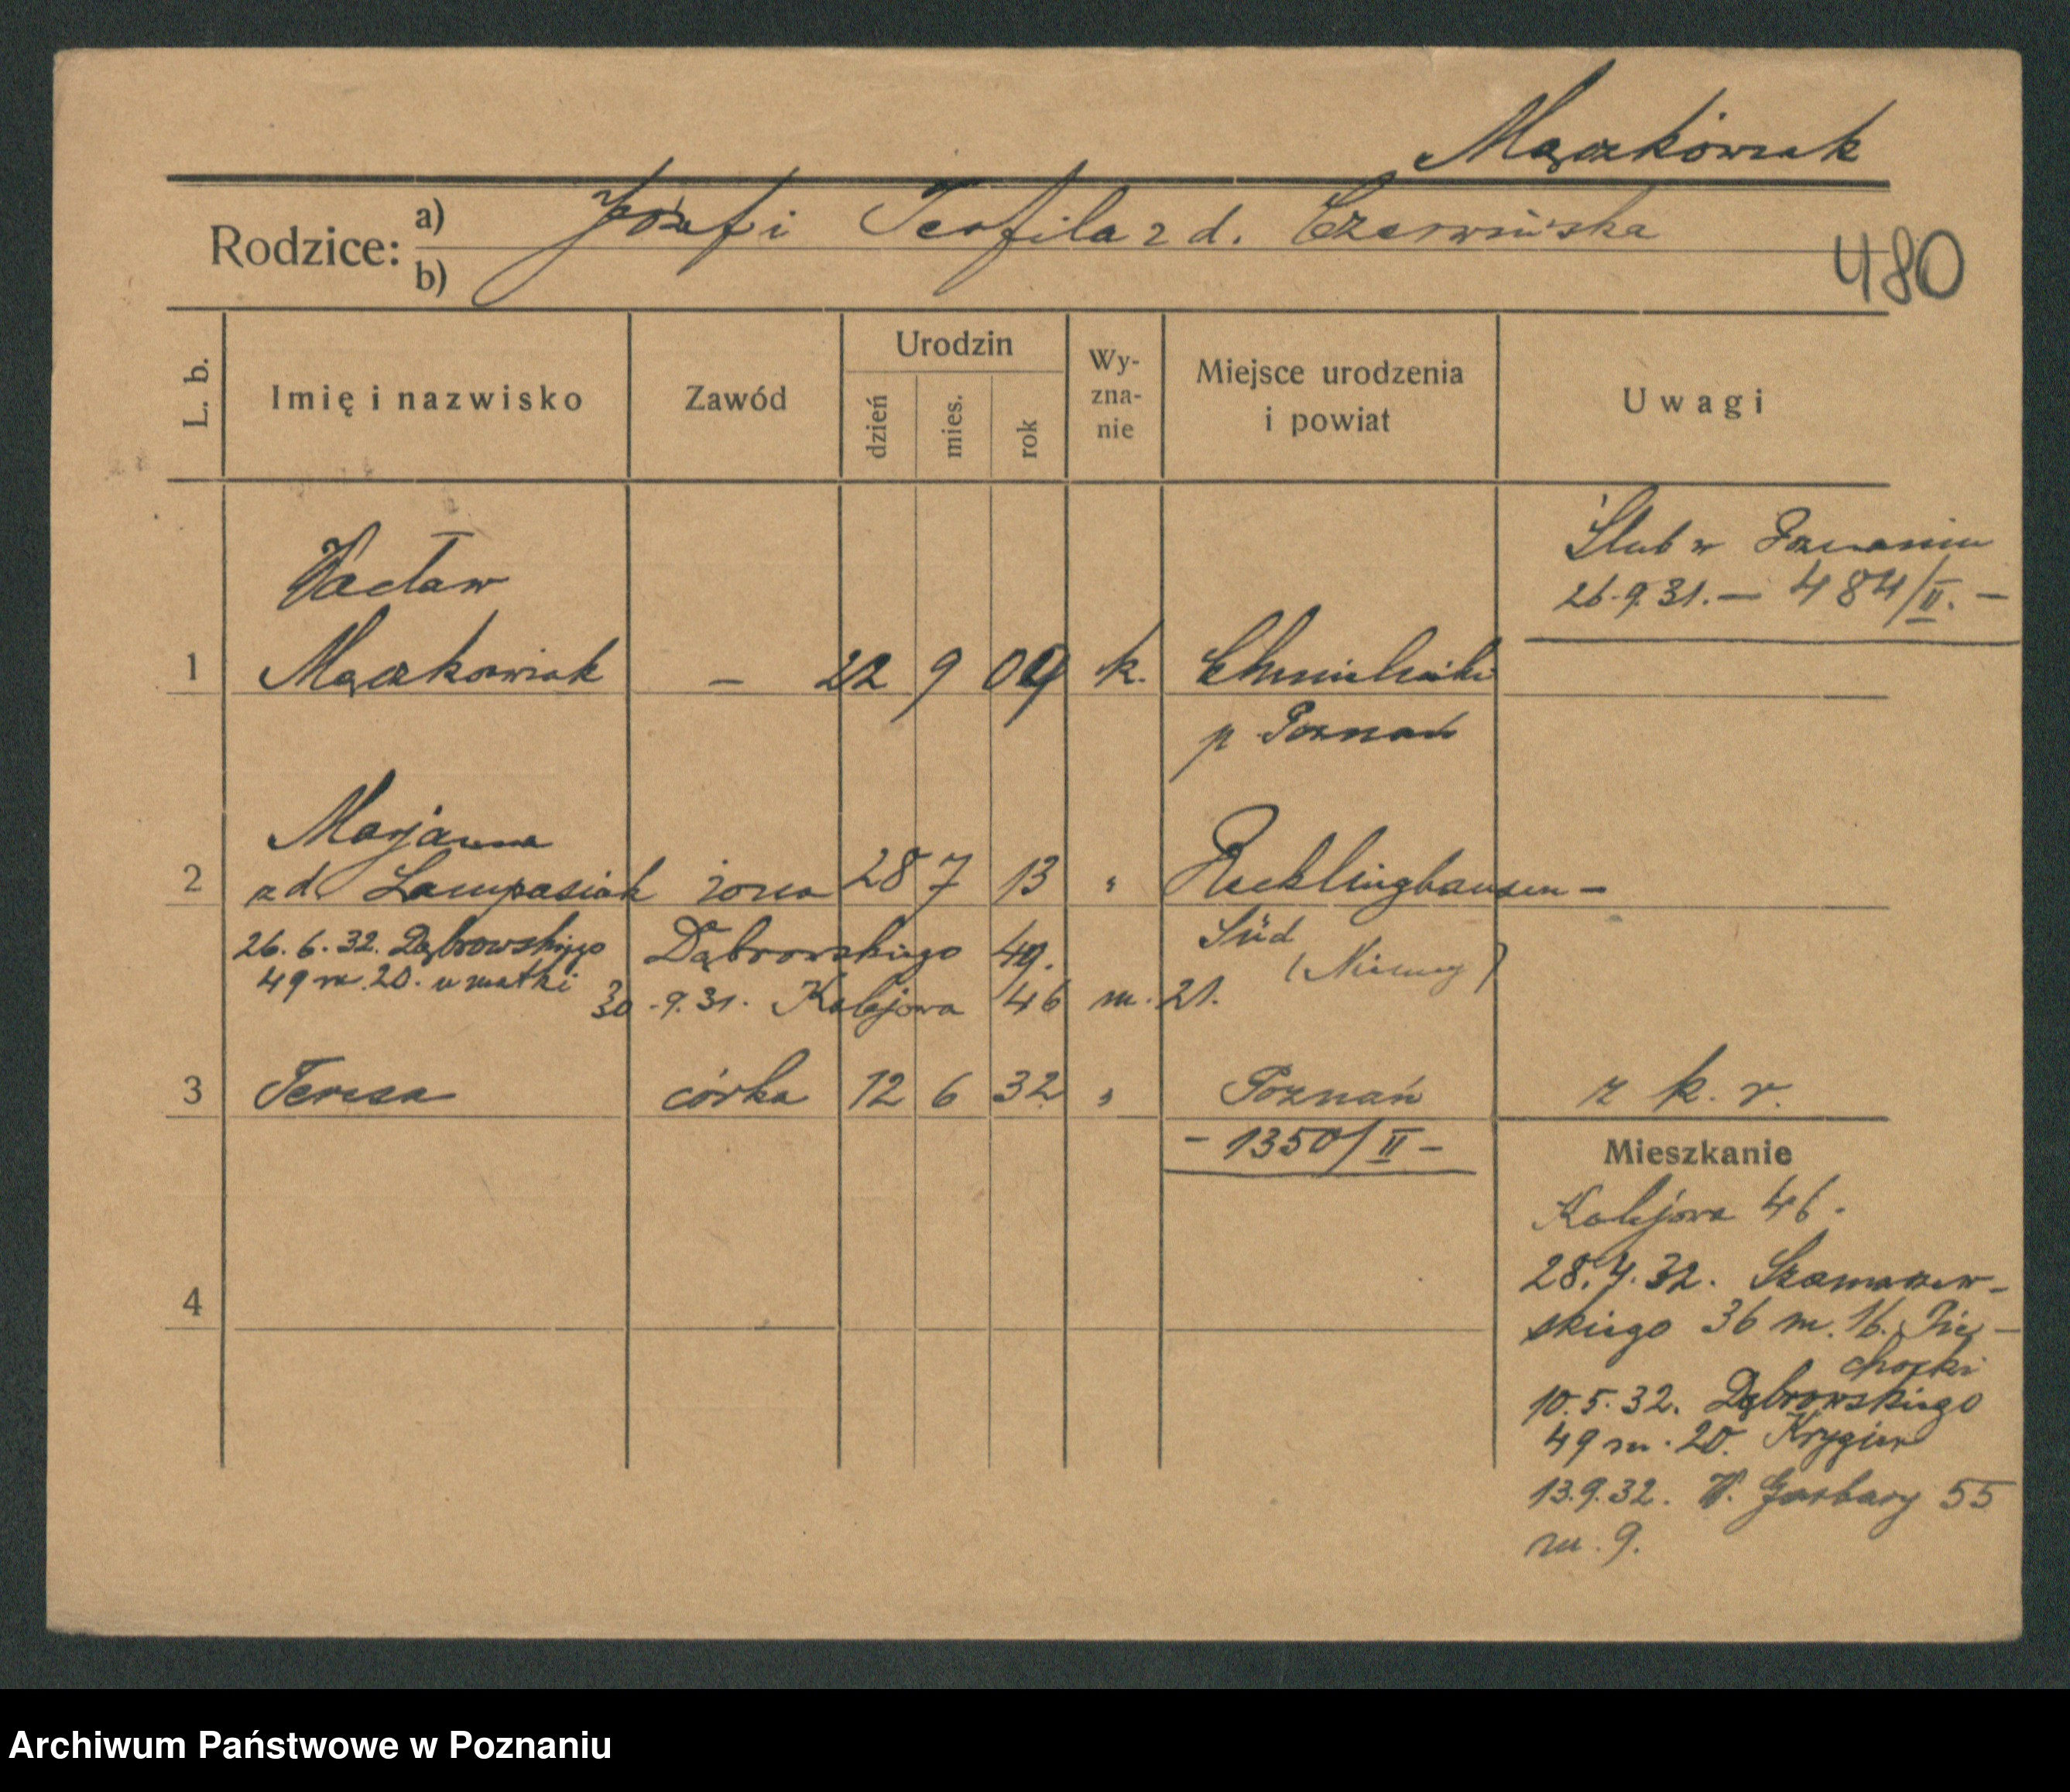 Mączkowiak
Rodzice: a) Józef i Teofila z d. Czerwińska
b)
480
L. b.
Imię i nazwisko
Zawód
Urodzin
dzień
mies.
rok
Wy-
zna-
nie
Miejsce urodzenia
i powiat
Uwagi
Ślub w Poznaniu
26.9.31. — 484/II. —
Wacław
1 Mączkowiak — 22 9 09 k. Chmielniki
p Poznań
Marjanna
2 z d. Lampasiak żona 28 7 13 " Recklinghausen –
Süd
(Niemcy)
26.6.32. Dąbrowskiego
49 m. 20. u matki
Dąbrowskiego 49.
30.9.31. Kolejowa 46 m. 21.
3 Teresa córka 12 6 32 " Poznań z k. r.
– 1350/II –
4
Mieszkanie
Kolejowa 46.
28.4.32. Szamarzew-
skiego 36 m. 16. Pie-
chocki
10.5.32. Dąbrowskiego
49 m. 20. Krygier
13.9.32. W. Garbary 55
m. 9.
Archiwum Państwowe w Poznaniu